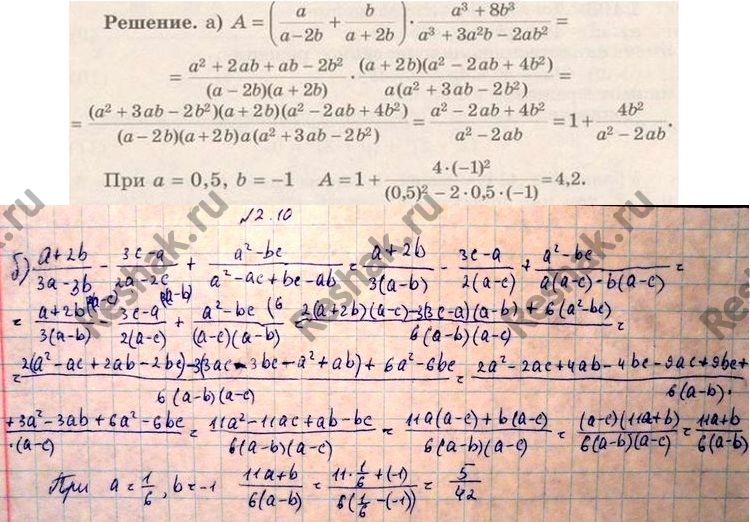 Решение. а) A = (a/(a-2b) + b/(a+2b)) · (a³+8b³)/(a³+3a²b-2ab²) =
= (a²+2ab+ab-2b²)/((a-2b)(a+2b)) · ((a+2b)(a²-2ab+4b²))/(a(a²+3ab-2b²)) =
= ((a²+3ab-2b²)(a+2b)(a²-2ab+4b²))/((a-2b)(a+2b)a(a²+3ab-2b²)) = (a²-2ab+4b²)/(a²-2ab) = 1 + 4b²/(a²-2ab).
При a = 0,5, b = -1 A = 1 + (4·(-1)²)/((0,5)²-2·0,5·(-1)) = 4,2.
№2.10
б) (a+2b)/(3a-3b) - (3c-a)/(2a-2c) + (a²-bc)/(a²-ac+bc-ab) = (a+2b)/(3(a-b)) - (3c-a)/(2(a-c)) + (a²-bc)/(a(a-c)-b(a-c)) =
= (a+2b)/(3(a-b)) - (3c-a)/(2(a-c)) + (a²-bc)/((a-c)(a-b)) = (2(a+2b)(a-c)-3(3c-a)(a-b)+6(a²-bc))/(6(a-b)(a-c)) =
= (2(a²-ac+2ab-2bc)-3(3ac-3bc-a²+ab)+6a²-6bc)/(6(a-b)(a-c)) = (2a²-2ac+4ab-4bc-9ac+9bc+)/(6(a-b)·
(+3a²-3ab+6a²-6bc)/(·(a-c)) = (11a²-11ac+ab-bc)/(6(a-b)(a-c)) = (11a(a-c)+b(a-c))/(6(a-b)(a-c)) = ((a-c)(11a+b))/(6(a-b)(a-c)) = (11a+b)/(6(a-b))
При a = 1/6, b = -1 (11a+b)/(6(a-b)) = (11·1/6+(-1))/(6(1/6-(-1))) = 5/42
Reshak.ru
Reshak.ru
Reshak.ru
Reshak.ru